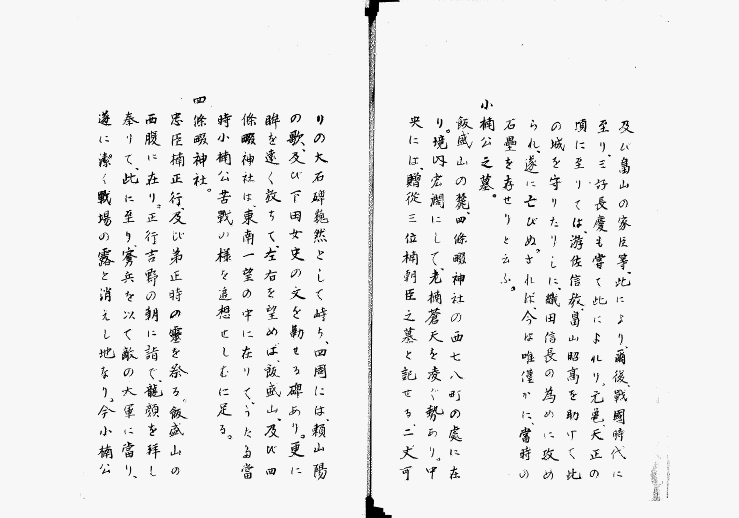 及び畠山の家臣等、此により、爾後、戰國時代に
至り、三好長慶も嘗て此によれり。元亀、天正の
頃に至りては、游佐信教、畠山昭高を助けて此
の城を守りたりしに、織田信長の為めに攻め
られ、遂に亡びぬ。されば、今は唯僅かに、當時の
石壘を存せりと云ふ。
小楠公之墓。
飯盛山の麓、四條畷神社の西七八町の處に在
り。境内宏闊にして、老楠蒼天を凌ぐ勢あり。中
央には、贈從三位楠朝臣之墓と記せる、二丈可
りの大石碑巍然として峙ち、四周には、頼山陽
の歌、及び下田女史の文を勒せる碑あり。更に
眸を遠く放ちて、左右を望めば、飯盛山、及び四
條畷神社は、東南一望の中に在りて、うたゝ當
時小楠公苦戰の様を追想せしむに足る。
四條畷神社。
忠臣楠正行、及び弟正時の靈を祭る。飯盛山の
西腹に在り。正行吉野の朝に詣で、龍顔を拜し
奉りて、此に至り、寡兵を以て敵の大軍に當り、
遂に潔く戰場の露と消えし地なり。今小楠公